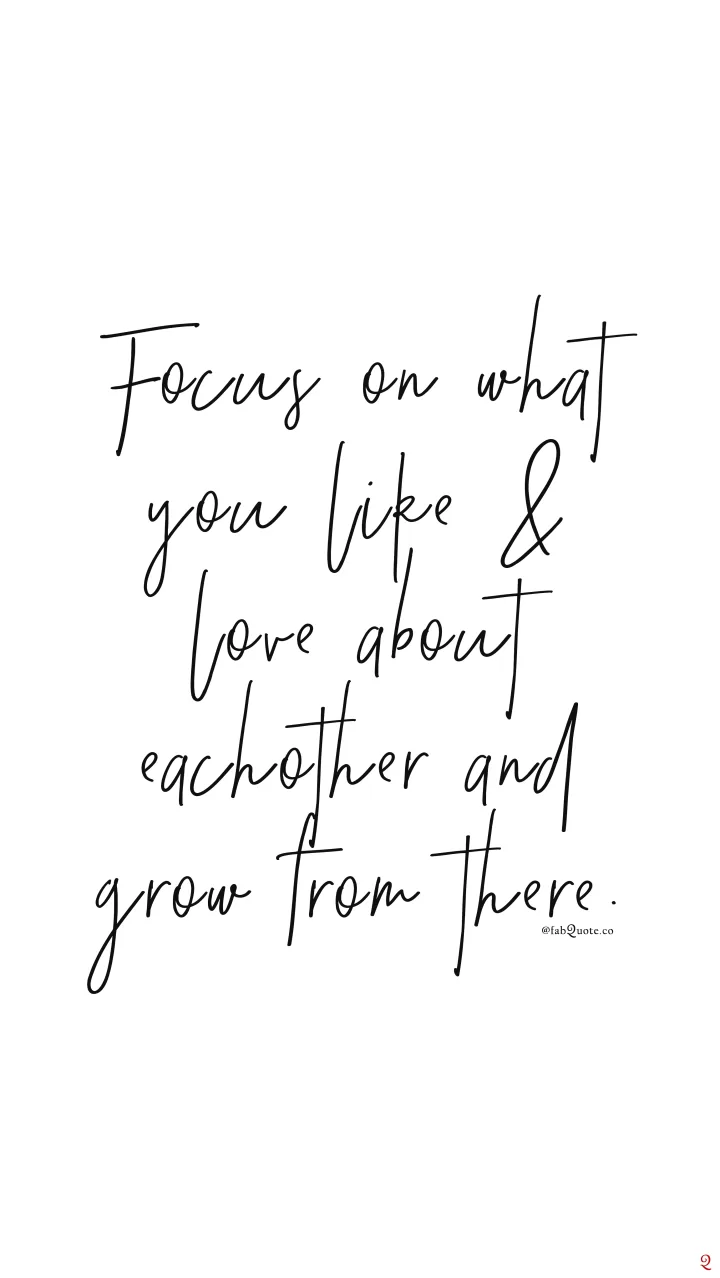 Focus on what
you like &
love about
eachother and
grow from there.
@fabQuote.co
Q